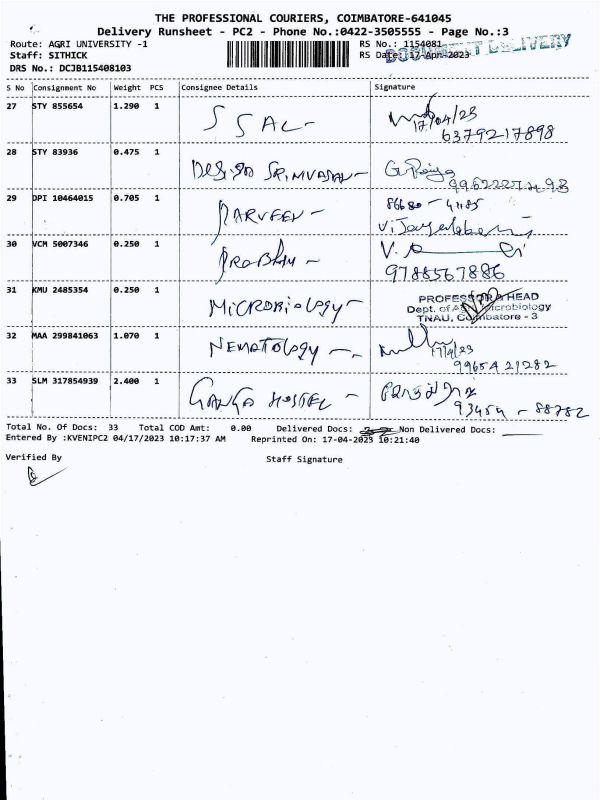 THE PROFESSIONAL COURIERS, COIMBATORE-641045
Delivery Runsheet - PC2 - Phone No.:0422-3505555 - Page No.:3
Route: AGRI UNIVERSITY -1 RS No.: 1154081
Staff: SITHICK RS Date: 17-Apr-2023
DOCUMENT DELIVERY
DRS No.: DCJB115408103
S No Consignment No Weight PCS Consignee Details Signature
27 STY 855654 1.290 1 SSAC - 17/04/23
6379217898
28 STY 83936 0.475 1 DESIGN SRINIVASAN - G. Priya
29 DPI 10464015 0.705 1 PARVEEN - 86680 - 41185
30 VCM 5007346 0.250 1 PRABHU -
9788567886
31 KMU 2485354 0.250 1 MICROBIOLOGY - PROFESSOR & HEAD
Dept. of Agrl. Microbiology
TNAU, Coimbatore - 3
32 MAA 299841063 1.070 1 NEMATOLOGY - 17/4/23
99654 21282
33 SLM 317854939 2.400 1 GANGA HOSTEL -
93454 - 88782
Total No. Of Docs: 33 Total COD Amt: 0.00 Delivered Docs: Non Delivered Docs:
Entered By :KVENIPC2 04/17/2023 10:17:37 AM Reprinted On: 17-04-2023 10:21:40
Verified By Staff Signature